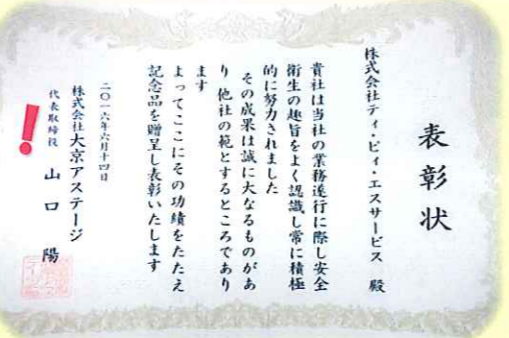 表彰状
株式会社ティ・ビィ・エスサービス 殿
貴社は当社の業務遂行に際し安全
衛生の趣旨をよく認識し常に積極
的に努力されました
その成果は誠に大なるものがあ
り 他社の範とするところであり
ます
よってここにその功績をたたえ
記念品を贈呈し表彰いたします
二〇一六年六月十四日
株式会社大京アステージ
代表取締役 山口 陽
!